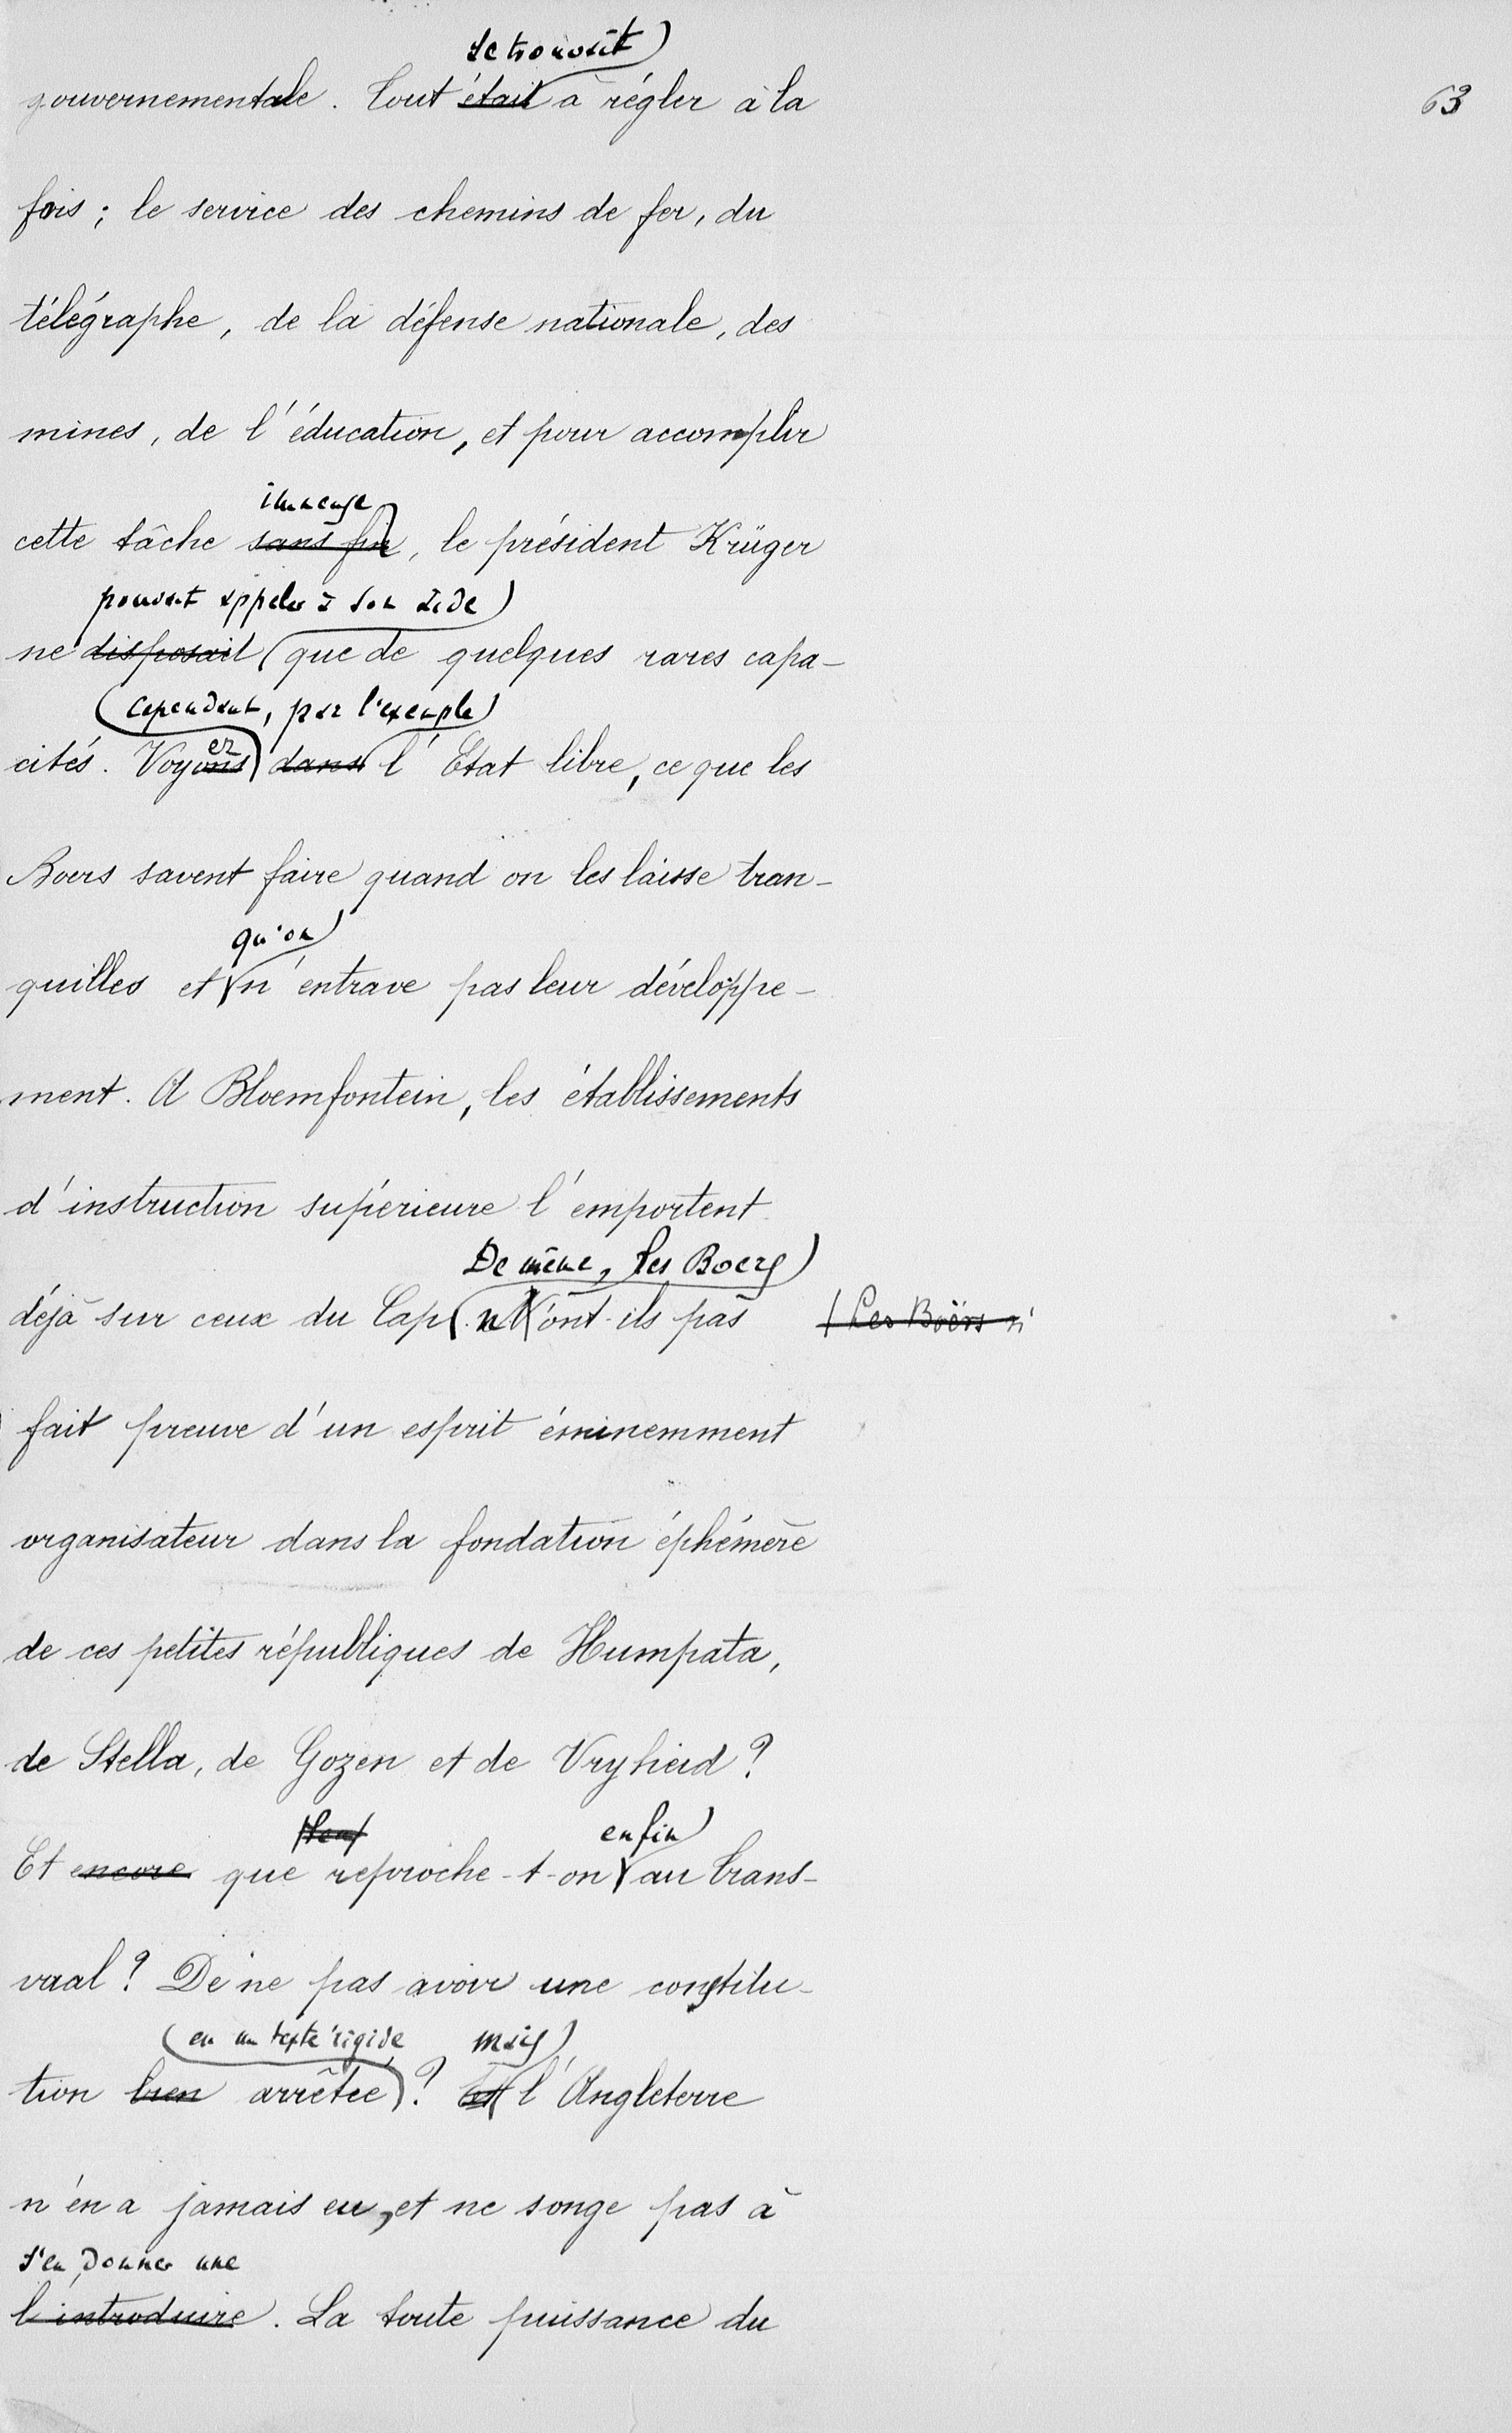 se trouvait
gouvernementale. Tout était à régler à la
63
fois; le service des chemins de fer, du
télégraphe, de la défense nationale, des
mines, de l'éducation, et pour accomplir
immense
cette tâche sans fin, le président Krüger
pouvait appeler à son aide
ne disposait que de quelques rares capa-
cependant, par l'exemple
ez
cités. Voyons dans l'Etat libre, ce que les
Boers savent faire quand on les laisse tran-
qu'on
quilles et n'entrave pas leur développe-
ment. A Bloemfontein, les établissements
d'instruction supérieure l'emportent
De même, les Boers
déjà sur ceux du Cap. n'ont-ils pas
Les Boërs n'
fait preuve d'un esprit éminemment
organisateur dans la fondation éphémère
de ces petites républiques de Humpata,
de Stella, de Gozen et de Vryheid?
enfin
Et encore que reproche-t-on au Trans-
vaal? De ne pas avoir une constitu-
en un texte rigide mais
tion bien arrêtée? Et l'Angleterre
n'en a jamais eu, et ne songe pas à
s'en donner une
l'introduire. La toute puissance du